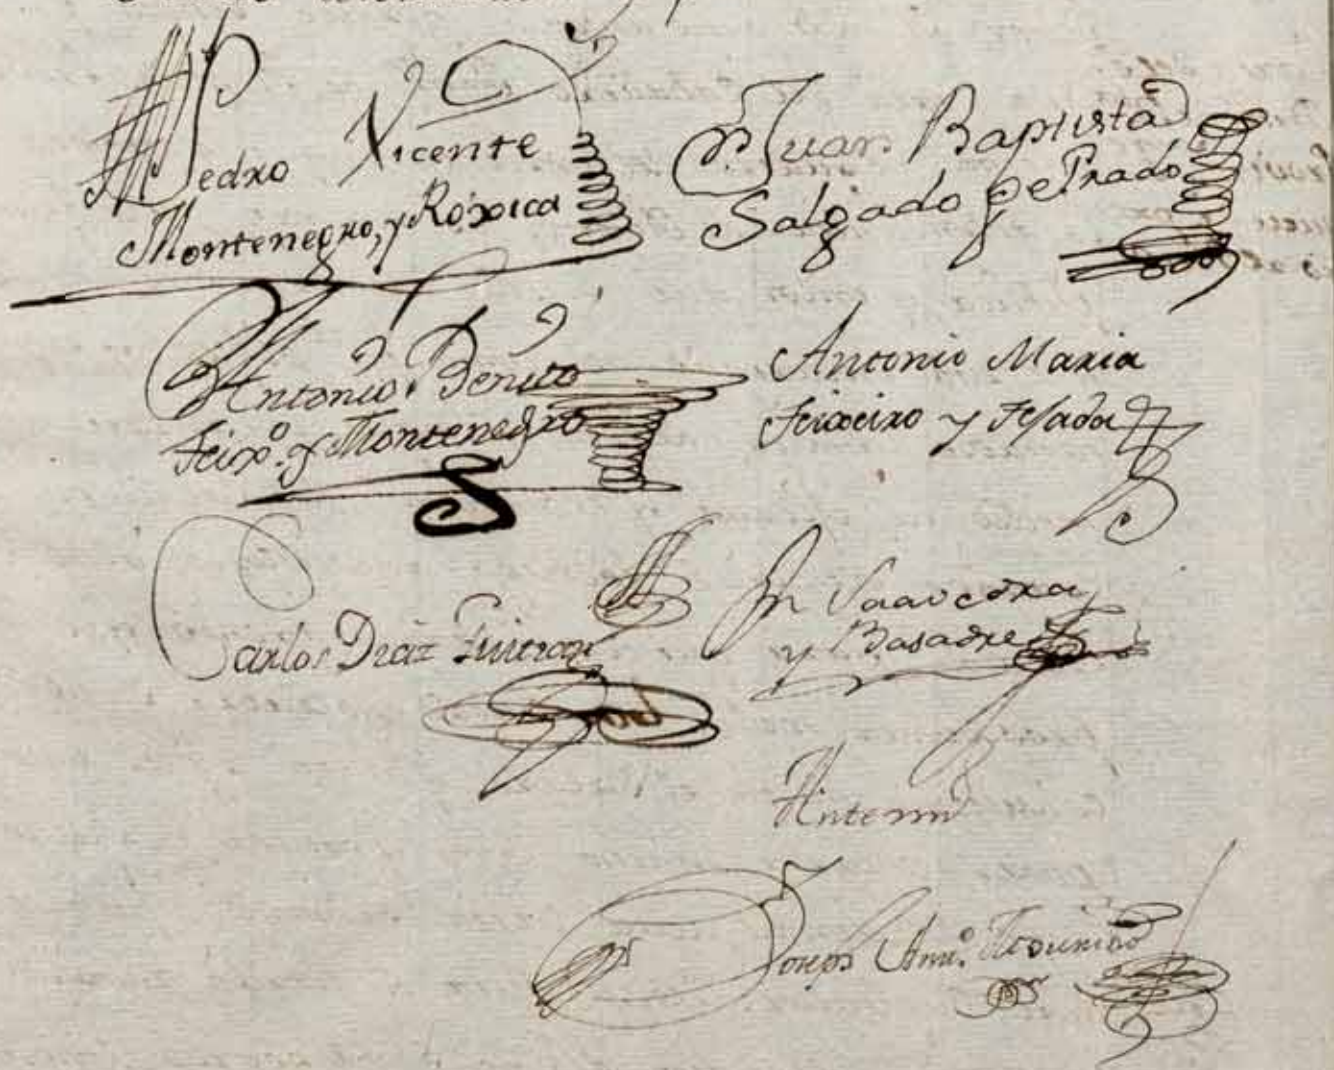 Pedro Vicente
Montenegro, y Róxica
Dn. Juan Baptista
Salgado de Prado
Antonio Benito
Feixo. y Montenegro
Antonio Maria
Feixeiro y Fesada
Carlos Diaz Guitian
Jn Saavedra
y Basadre
Antemi
Joseph Anto.